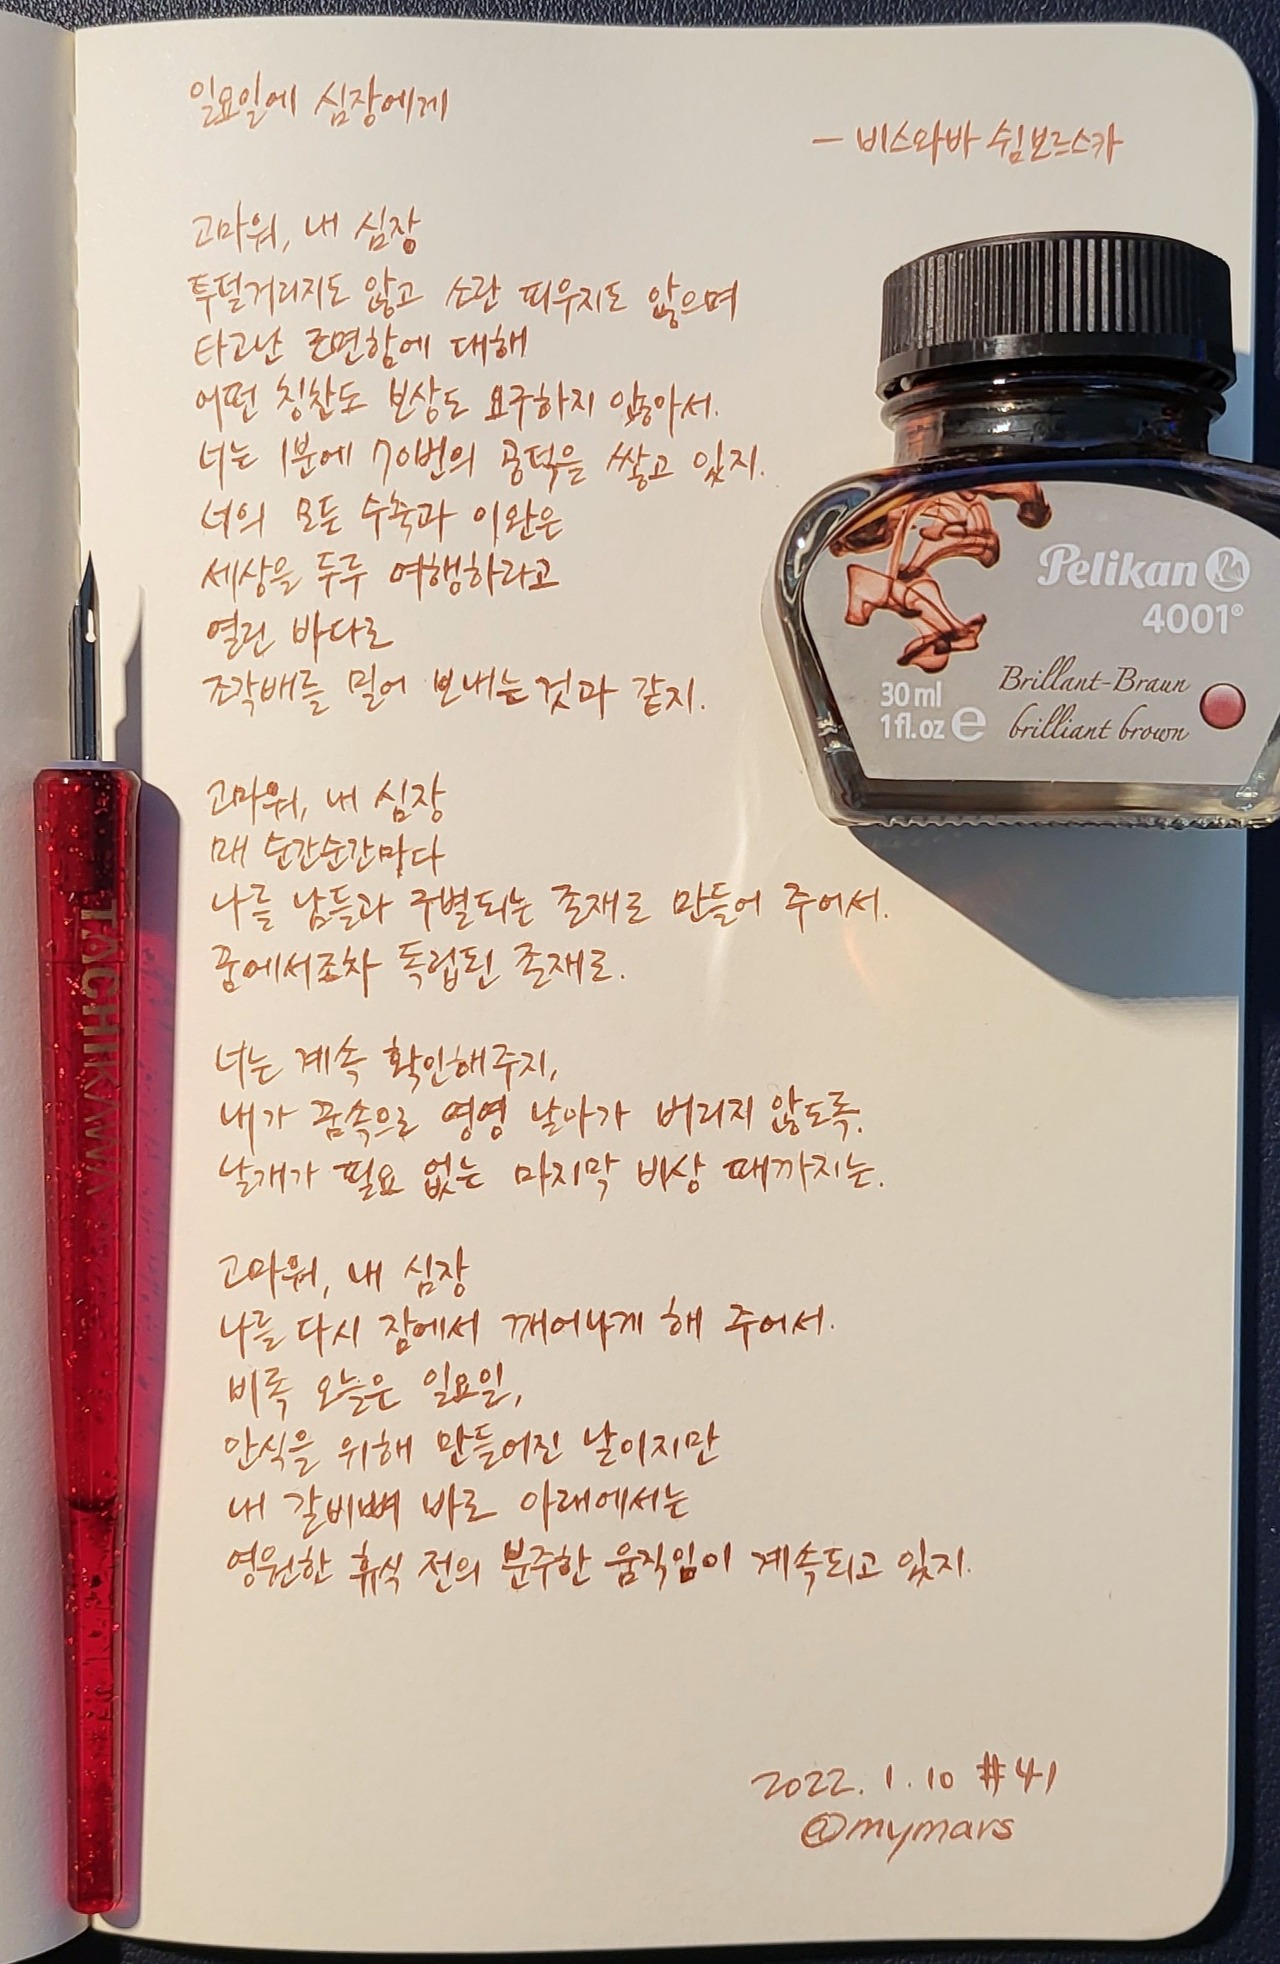 일요일에 심장에게
- 비스와바 쉼보르스카
고마워, 내 심장
투덜거리지도 않고 소란 피우지도 않으며
타고난 근면함에 대해
어떤 칭찬도 보상도 요구하지 않아서.
너는 1분에 70번의 공덕을 쌓고 있지.
너의 모든 수축과 이완은
세상을 두루 여행하라고
열린 바다로
조각배를 밀어 보내는 것과 같지.
고마워, 내 심장
매 순간순간마다
나를 남들과 구별되는 존재로 만들어 주어서.
꿈에서조차 독립된 존재로.
너는 계속 확인해주지,
내가 꿈속으로 영영 날아가 버리지 않도록.
날개가 필요 없는 마지막 비상 때까지는.
고마워, 내 심장
나를 다시 잠에서 깨어나게 해 주어서.
비록 오늘은 일요일,
안식을 위해 만들어진 날이지만
내 갈비뼈 바로 아래에서는
영원한 휴식 전의 분주한 움직임이 계속되고 있지.
2022. 1. 10 #41
@mymars
Pelikan
4001®
30 ml
1 fl. oz e
Brillant-Braun
brilliant brown
TACHIKAWA